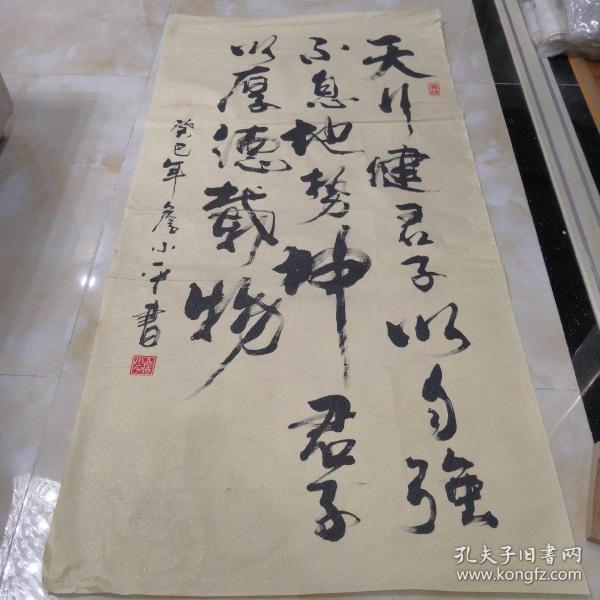 天行健君子以自強
不息地势坤君子
以厚德载物
癸巳年詹小平書
孔夫子旧書网
www.kongfz.com